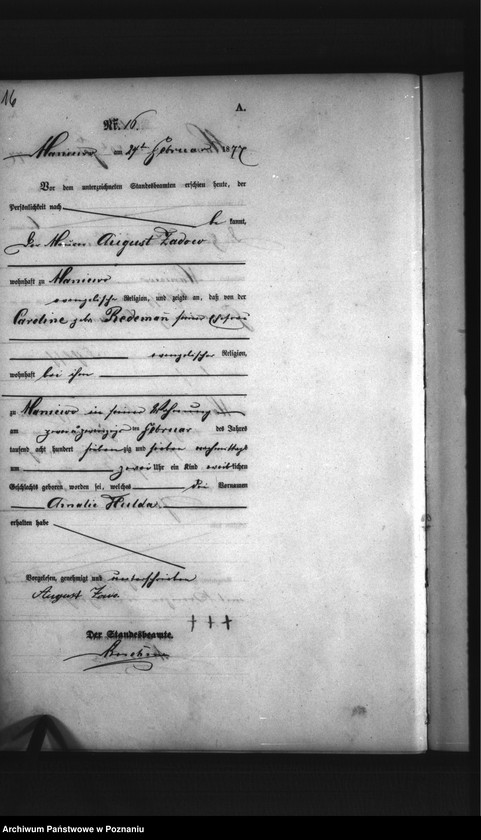 16
A.
Nr. 16.
Maniewo am 24t Februar 1877
Vor dem unterzeichneten Standesbeamten erschien heute, der
Persönlichkeit nach
be kannt,
Der August Zadow
wohnhaft zu Maniewo
evangelischer Religion, und zeigte an, daß von der
Caroline geb. Redemann seiner Ehefrau
evangelischer Religion,
wohnhaft bei ihm
zu Maniewo in seiner Wohnung
am zwanzigsten Februar des Jahres
tausend acht hundert siebenzig und sieben nachmittags
um zwei Uhr ein Kind weiblichen
Geschlechts geboren worden sei, welches die Vornamen
Amalie Hulda
erhalten habe
Vorgelesen, genehmigt und unterschrieben
August
+++
Der Standesbeamte.
Archiwum Państwowe w Poznaniu